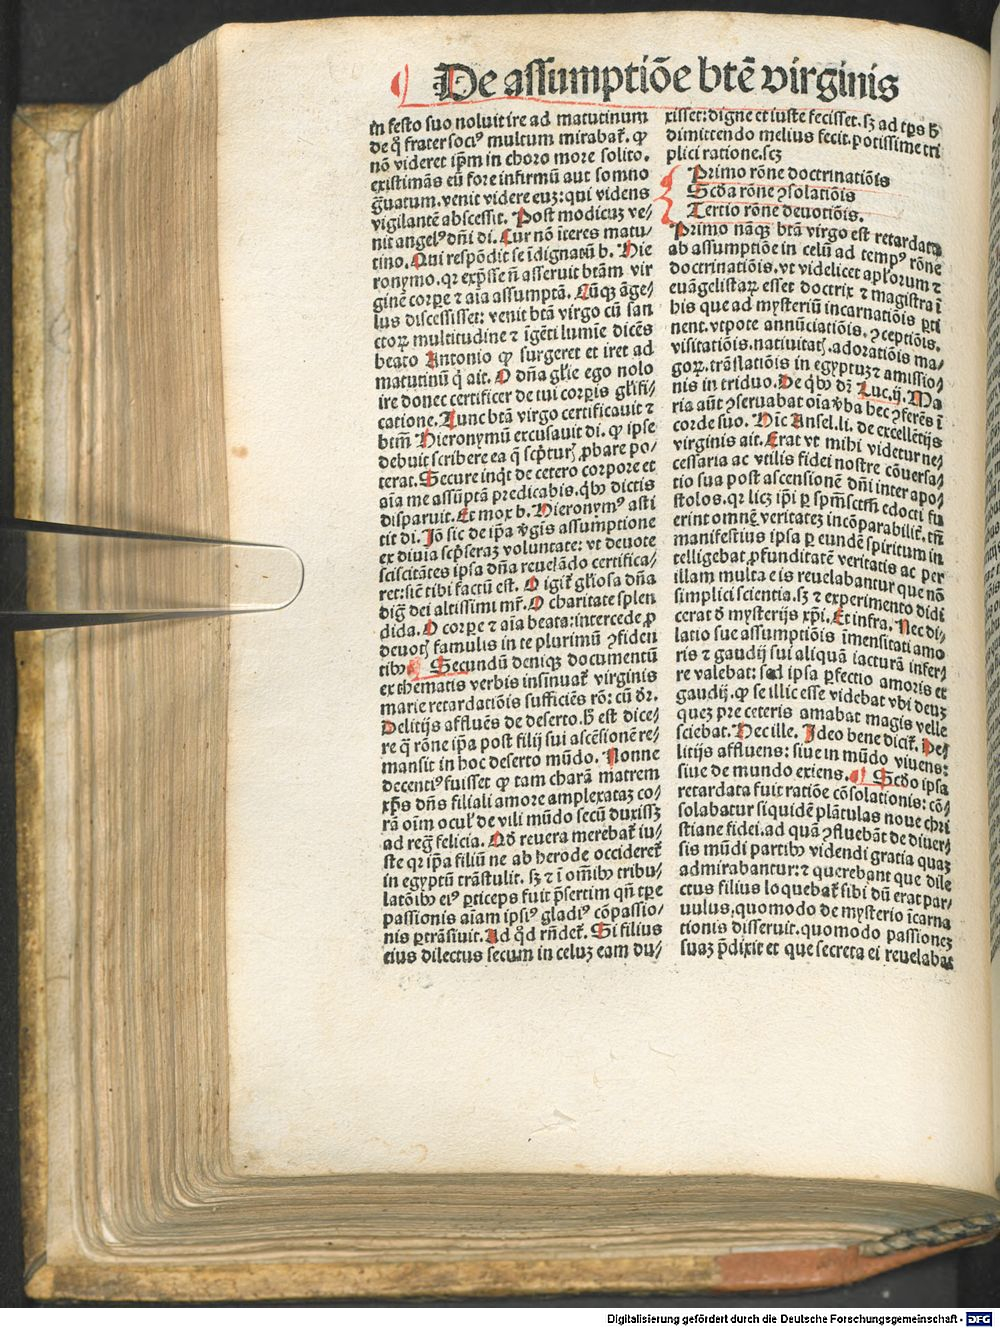 De assumptiõe btẽ virginis
in festo suo noluit ire ad matutinum
de qͦ frater socꝰ multum mirabat̃. ꝙ
nõ videret ip̃m in choro more solito.
existimãs eũ fore infirmũ aut somno
g̃uatum. venit videre euȝ: qui videns
vigilantẽ abscessit. Post modicuȝ ve⸗
nit angelꝰ dñi di. Cur nõ iteres matu⸗
tino. Qui respõdit se ĩdignatũ b. Hie
ronymo. qꝛ exp̃sse ñ asseruit btãm vir
ginẽ corꝑe ⁊ aĩa assumptã. Cũqȝ ãge⸗
lus discessisset: venit btã virgo cũ san
ctoꝝ multitudine ⁊ ĩgẽti lumĩe dicẽs
beato Antonio ꝙ surgeret et iret ad
matutinũ q̇ ait. O dña gl̃ie ego nolo
ire donec certificer de tui corꝑis gl̃ifi⸗
catione. Tunc btã virgo certificauit ⁊
btm̃ Hieronymũ excusauit di. ꝙ ipse
debuit scribere ea q̃ sc̃pturȝ ꝓbare po⸗
terat. Secure inqͥt de cetero corpore et
aĩa me assũptã predicabis. qͥbꝰ dictis
disparuit. Et mox b. Hieronymꝰ asti
tit di. Iõ sic de ip̃a ṽgĩs assumptione
ex diuĩa sc̃pseraȝ voluntate: vt deuote
sciscitãtes ipsa dña reuelãdo certifica⸗
ret: sicut tibi factũ est. O igit̃ gl̃iosa dña
dig̃ dei altissimi mr̃. O charitate splen
dida. O corꝑe ⁊ aĩa beata: intercede ꝓ
deuotȝ famulis in te plurimũ ꝯfiden
tibꝰ Secundũ deniqȝ documentũ
ex thematis verbis insinuat̃ virginis
marie retardatiõis sufficiẽs rõ: cũ dr̃.
Delitijs affluẽs de deserto. h̃ est dice⸗
re q̃ rõne ip̃a post filij sui ascẽsionẽ re⸗
mansit in hoc deserto mũdo. Nonne
decentiꝰ fuisset ꝙ tam charã matrem
xp̃s dñs filiali amore amplexataȝ co⸗
rã oĩm oculꝭ de vili mũdo secũ duxissȝ
ad reg̃ felicia. Qd̃ reuera merebat̃ iu⸗
ste qꝛ ip̃a filiũ ne ab herode occideret̃
in egyptũ trãstulit. sȝ ⁊ ĩ oĩm̃ibꝰ tribu⸗
latõibꝰ eiꝰ ꝑticeps fuit p̃sertim qñ tꝑe
passionis aĩam ipsiꝰ gladiꝰ cõpassio⸗
nis ꝑtrãsiuit. Ad qd̃ rñdet̃. Si filius
eius dilectus secum in celuȝ eam du⸗
xisset: digne et iuste fecisset. sȝ ad tp̃s h̃
dimittendo melius fecit. potissime tri
plici ratione. scȝ
Primo rõne doctrinatiõis
Scd̃a rõne ꝯsolatiõis
Tertio rõne deuotiõis.
Primo nãqȝ btã virgo est retardata
ab assumptiõe in celũ ad tempꝰ rõne
doctrinatiõis. vt videlicet apl̃orum ⁊
euãgelistaꝝ esset doctrix ⁊ magistra ĩ
his que ad mysteriũ incarnatiõis ꝑti
nent. vtpote annũciatiõis. ꝯceptiõis.
visitatiõis. natiuitatȝ. adoratiõis ma⸗
goꝝ. trãslatiõis in egyptuȝ ⁊ amissio⸗
nis in triduo. De qͥbꝰ dȝ Luc. ij. Ma
ria aũt ꝯseruabat oĩa ṽba hec ꝯferẽs ĩ
corde suo. Hĩc Ansel. li. de excellẽtijs
virginis ait. Erat vt mihi videtur ne⸗
cessaria ac vtilis fidei nostre cõuersa⸗
tio sua post ascensionẽ dñi inter apo⸗
stolos. qꝛ licȝ ip̃i ꝑ spm̃sctm̃ edocti fu
erint omnẽ veritateȝ incõparabilit̃. tñ
manifestius ipsa ꝑ eundẽ spiritum in
telligebat ꝓfunditatẽ veritatis ac per
illam multa eis reuelabantur que nõ
simplici scientia. sȝ ⁊ experimento didi
cerat d̃ mysterijs xp̃i. Et infra. Nec di⸗
latio sue assumptiõis ĩmensitati amo
ris ⁊ gaudij sui aliquã iacturã infer⸗
re valebat: sed ipsa ꝑfectio amoris et
gaudij. ꝙ se illic esse videbat vbi deuȝ
queȝ pre ceteris amabat magis velle
sciebat. Hec ille. Ideo bene dicit̃. De⸗
litijs affluens: siue in mũdo viuens:
siue de mundo exiens. Scd̃o ipsa
retardata fuit ratiõe cõsolationis: cõ⸗
solabatur siquidẽ plãtulas noue chri
stiane fidei. ad quã ꝯfluebãt de diuer⸗
sis mũdi partibꝰ videndi gratia quaȝ
admirabantur: ⁊ querebant que dile
ctus filius loquebat̃ sibi dũ erat par⸗
uulus, quomodo de mysterio ĩcarna
tionis disseruit. quomodo passioneȝ
suaȝ p̃dixit et que secreta ei reuelabat
Digitalisierung gefördert durch die Deutsche Forschungsgemeinschaft - DFG